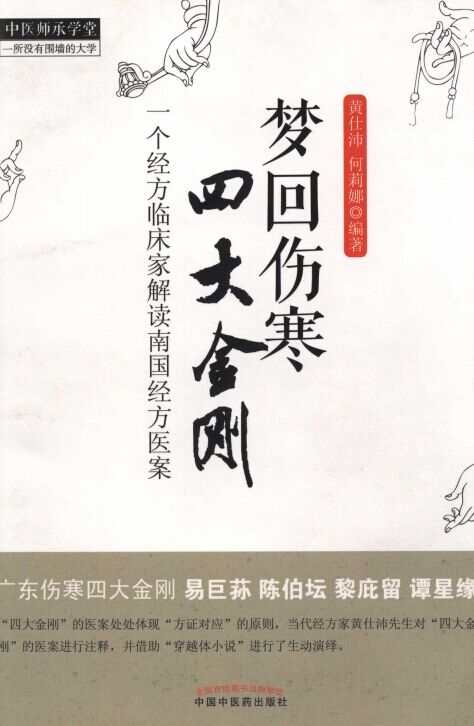 中医师承学堂
一所没有围墙的大学
黄仕沛 何莉娜◎编著
梦回伤寒
四大金刚
一个经方临床家解读南国经方医案
广东伤寒四大金刚 易巨荪 陈伯坛 黎庇留 谭星缘
“四大金刚”的医案处处体现“方证对应”的原则，当代经方家黄仕沛先生对“四大金
刚”的医案进行注释，并借助“穿越体小说”进行了生动演绎。
全国百佳图书出版单位
中国中医药出版社